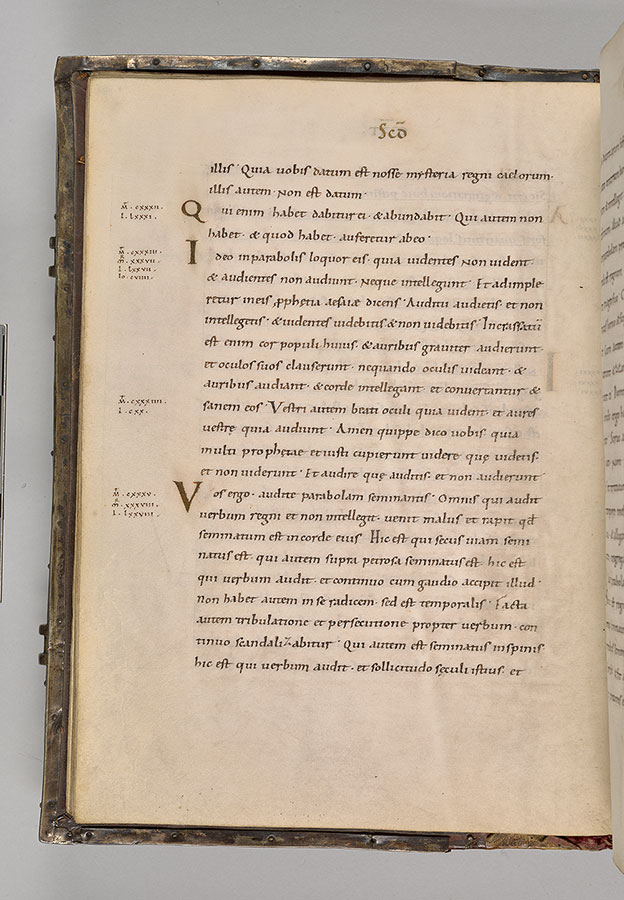 Scđ
illis · Quia uobis datum est nosse mysteria regni caelorum·
illis autem · Non est datum·
Qui enim habet dabitur ei · & abundabit · Qui autem non
habet · & quod habet · auferetur ab eo ·
Ideo in parabolis loquor eis · quia uidentes Non uident·
& audientes non audiunt · Neque intellegunt · Et adimple
retur in eis ꝓphetia aesaiae dicens · Auditu audietis · et non
intellegetis · & uidentes uidebitis & non uidebitis · Incrassatū
est enim cor populi huius · & auribus grauiter audierunt·
et oculos suos clauserunt · nequando oculis uideant · &
auribus audiant · & corde intellegant · et conuertantur &
sanem eos · Vestri autem beati oculi quia uident · et aures
uestrę quia audiunt · Amen quippe dico uobis · quia
multi prophetae et iusti cupierunt uidere quę uidetis·
et non uiderunt · Et audire quę auditis · et non audierunt
Vos ergo · audite parabolam seminantis · Omnis qui audit
uerbum regni et non intellegit · uenit malus et rapit qđ
seminatum est in corde eius · Hic est qui secus uiam semi
natus est · qui autem supra petrosa seminatus est · hic est
qui uerbum audit · et continuo cum gaudio accipit illud ·
Non habet autem in se radicem · sed est temporalis · Facta
autem tribulatione et persecutione propter uerbum · con
tinuo scandalizabitur · Qui autem est seminatus in spinis
hic est qui uerbum audit · et sollicitudo sęculi istius · et
m̄ · cxxxii ·
l · lxxxi ·
m̄ · cxxxiii ·
m̄ · xxxvii ·
l · lxxvii ·
io · cviiii ·
m̄ · cxxxiiii ·
l · cxx ·
m̄ · cxxxv ·
m̄ · xxxviii ·
l · lxxviii ·